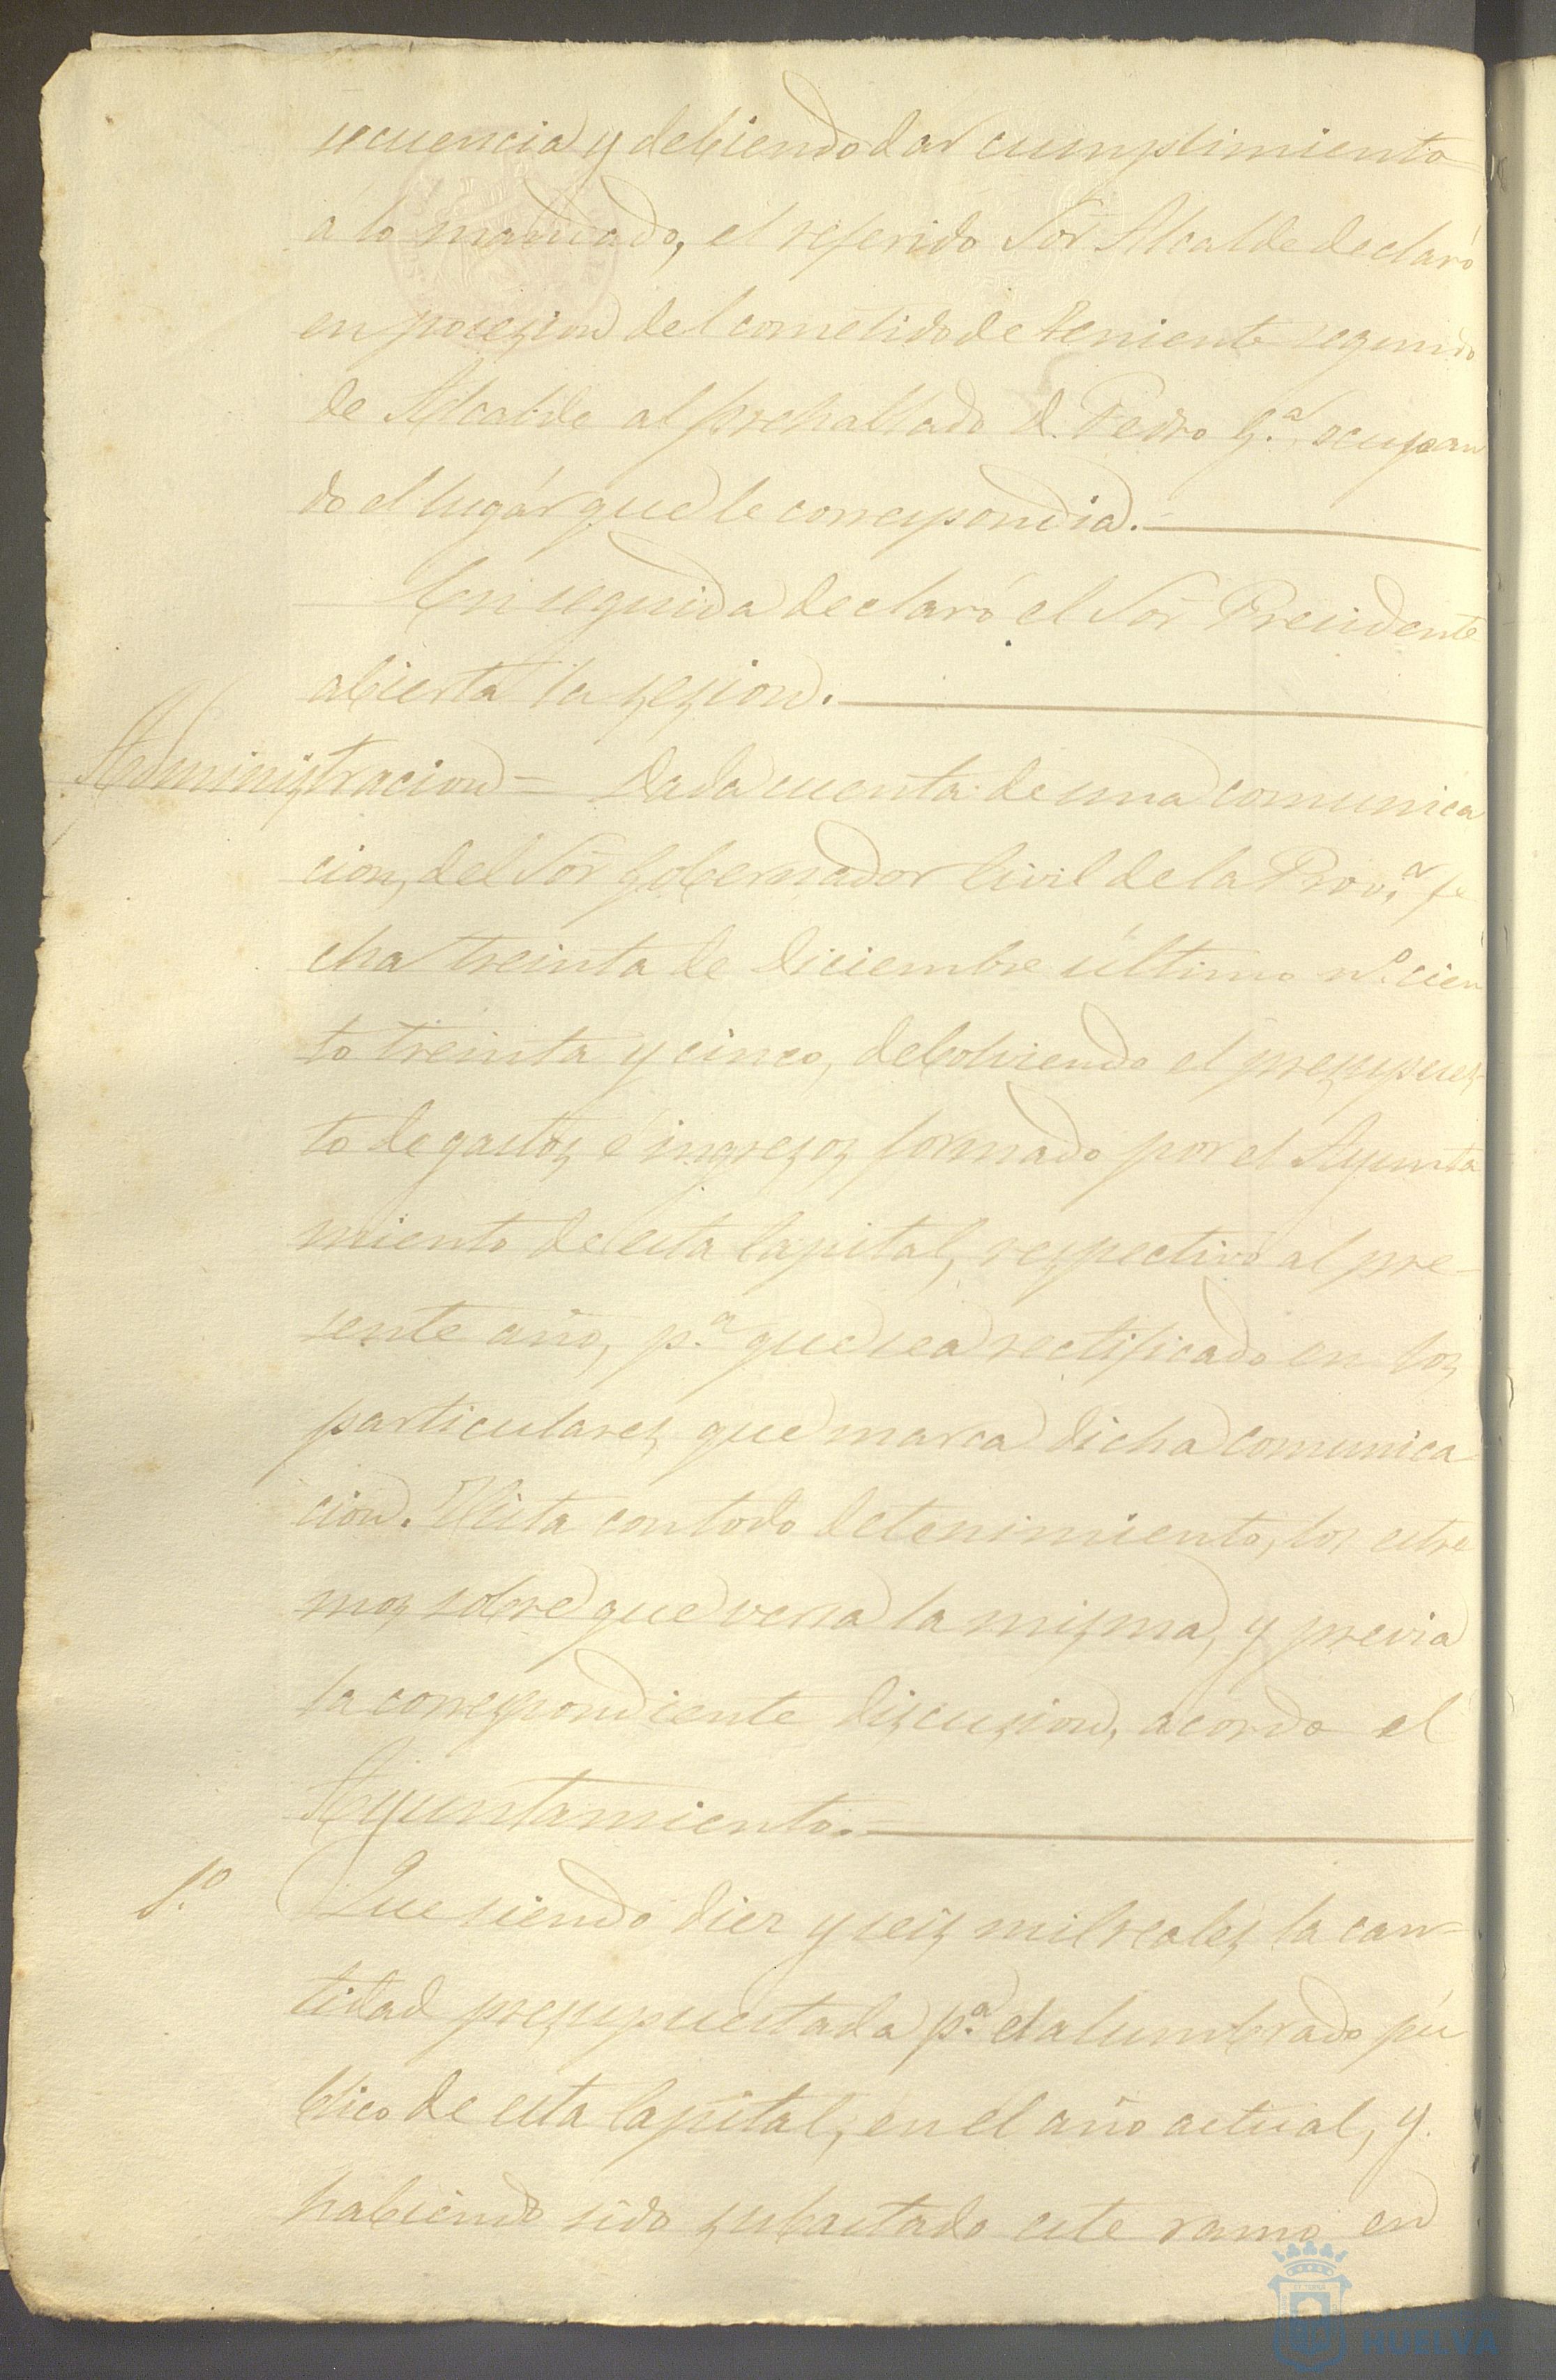 secuencia y debiendo dar cumplimiento
a lo mandado, el referido Sor. Alcalde declaró
en posesion del cometido de teniente segundo
de Alcalde al prehallado d. Pedro G.ª ocupan
do el lugár que le correspondia.
En seguida declaró el Sor. Presidente
abierta la sesion.
Administracion = Dada cuenta de una comunica
cion, del Sor. Gobernador Civil de la Prov.ª fe
cha treinta de Diciembre último n.º cien
to treinta y cinco, debolviendo el presupues
to de gastos é ingresos formado por el Ayunta
miento de esta Capital, respectivo al pre-
sente año, p.ª que sea rectificado en los
particulares que marca dicha comunica
cion. Vista con todo detenimiento, los estre
mos sobre que versa la misma, y previa
la correspondiente discusion, acordo el
Ayuntamiento.
1.º Que siendo diez y seis mil reales la can-
tidad presupuestada p.ª el alumbrado pú
blico de esta Capital, en el año actual, y
habiendo sido subastado este ramo en
HUELVA